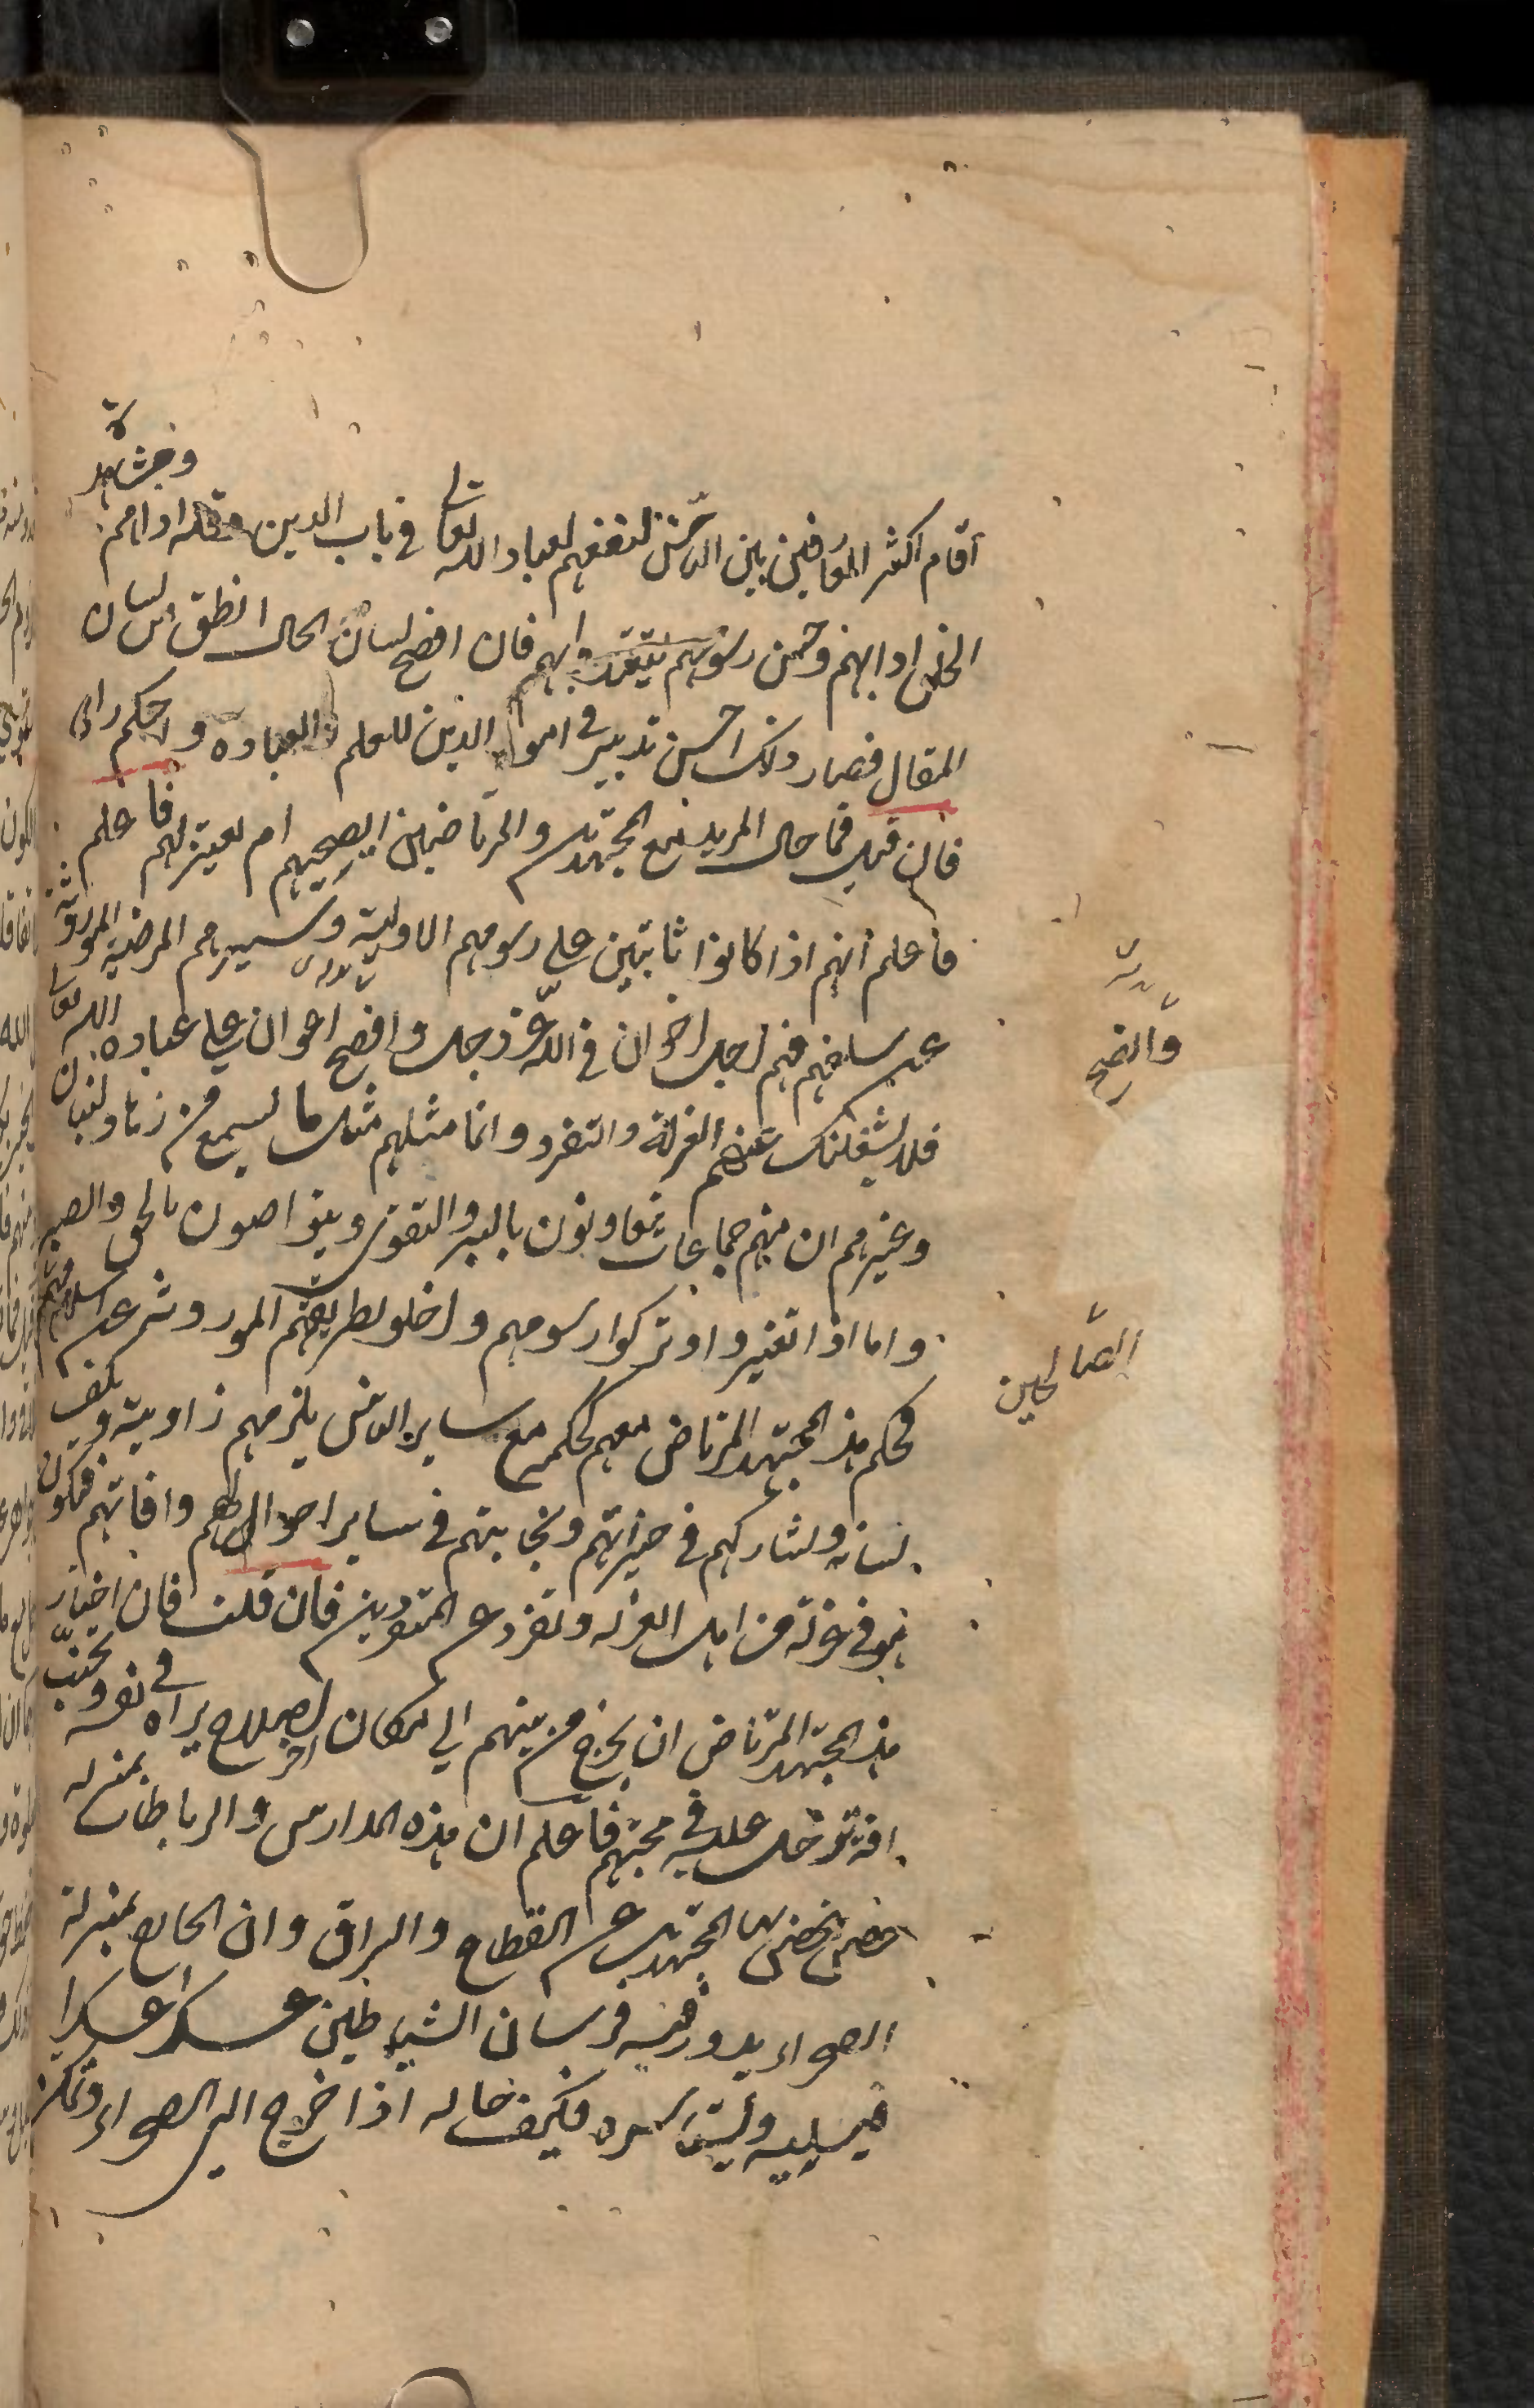 وفي مشاهدة
اقام اكثر الموافقين بين الناس لنفعهم لعباد الله تعالى في باب الدين وقلة اذا هم
الخلق ادابهم وحسن رسومهم ليقتدوا بهم فان افصح لسان الحال انطق من لسان
المقال فصار ذلك احسن تدبير في امور الدين للعلم والعبادة واحكم راى
فان قيل فما حال المريد مع المجتهدين والمرتاضين ايصحبهم ام يعتزلهم فاعلم
فاعلم انهم اذا كانوا ثابتين على رسومهم الاولية وسيرهم المرضية الموروثة
عن سلفهم فهم اجل اخوان في الله عز وجل وافصح اعوان على عبادة الله تعالى
فلا يشغلنك عنهم العزلة والتفرد وانما مثلهم مثل ما يسمع من زهاد لبنان
وغيرهم ان منهم جماعات يتعاونون بالبر والتقوى ويتواصون بالحق والصبر
واما اذا تغيروا وتركوا رسومهم واخلوا بطريقهم الموروث عن اسلافهم
فحكم هذا المجتهد المرتاض معهم كحكم مع ساير الناس يلزمهم زاويته ويكف
لسانه ويشاركهم في خيراتهم ويجانبهم في ساير احوالهم وافاتهم فيكون
هو في عزلة من اهل العزلة وتفرد عن المتفردين فان قلت فان اختار
هذا المجتهد المرتاض ان يخرج من بينهم الى مكان اخر لصلاح يراه في نفسه وتجنب
افة تدخل عليه في صحبتهم فاعلم ان هذه المدارس والرباطات بمنزلة
حصن يحصن بها المجتهدين عن القطاع والسراق وان الخارج بمنزلة
الصحراء يدور فيه فرسان الشياطين عسكرا عسكرا
فيسلبه وليستأسره فكيف حاله اذا خرج الى الصحراء وتمكن
وانصح
الصالحين